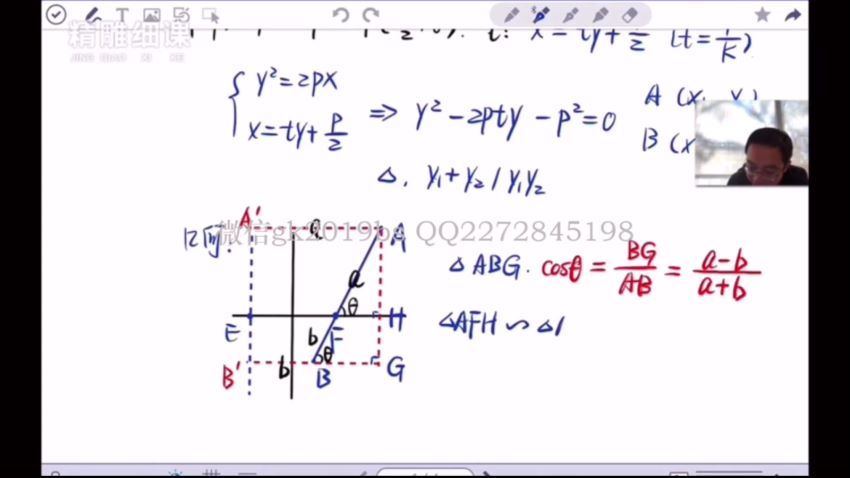 精雕细课
JING DIAO XI KE
x = ty + p/2 (t = 1/k)
{ y² = 2px
x = ty + p/2
⇒ y² - 2pty - p² = 0
A (x₁ y
B (x
Δ. y₁+y₂ / y₁y₂
几何:
微信gk2019bs QQ2272845198
A' a A
a
θ
E F H
b θ
B' b B G
△ABG. cosθ = BG/AB = a-b/a+b
△AFH ∽ △